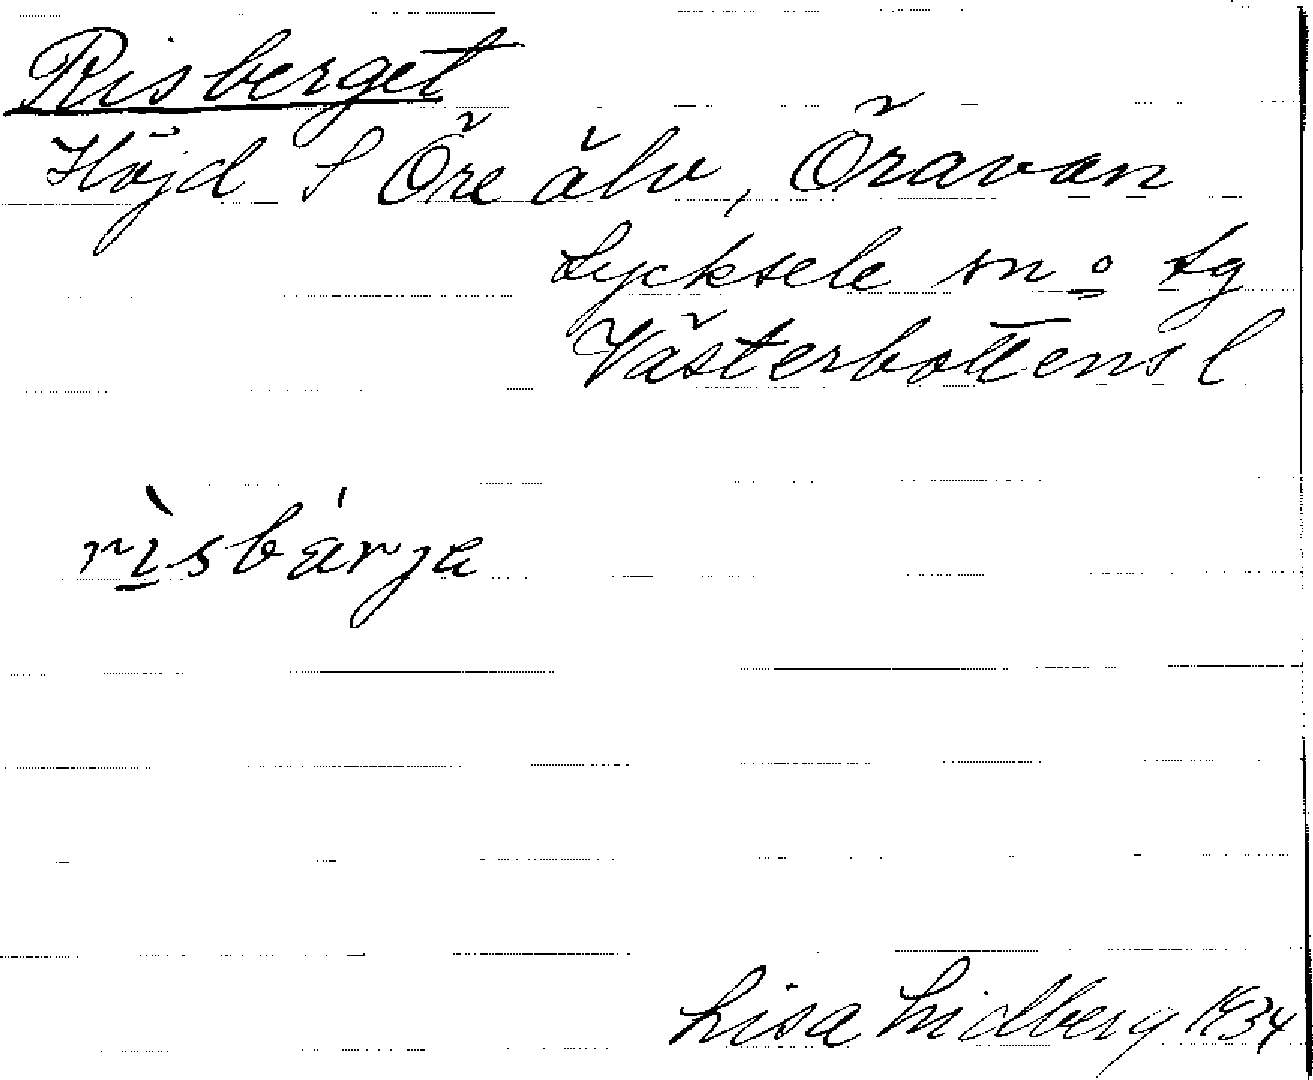 Risberget
Höjd S Öre älv, Öravan
Lycksele sn o lg
Västerbottens l
rìsbárja
Lisa Lidberg 1934